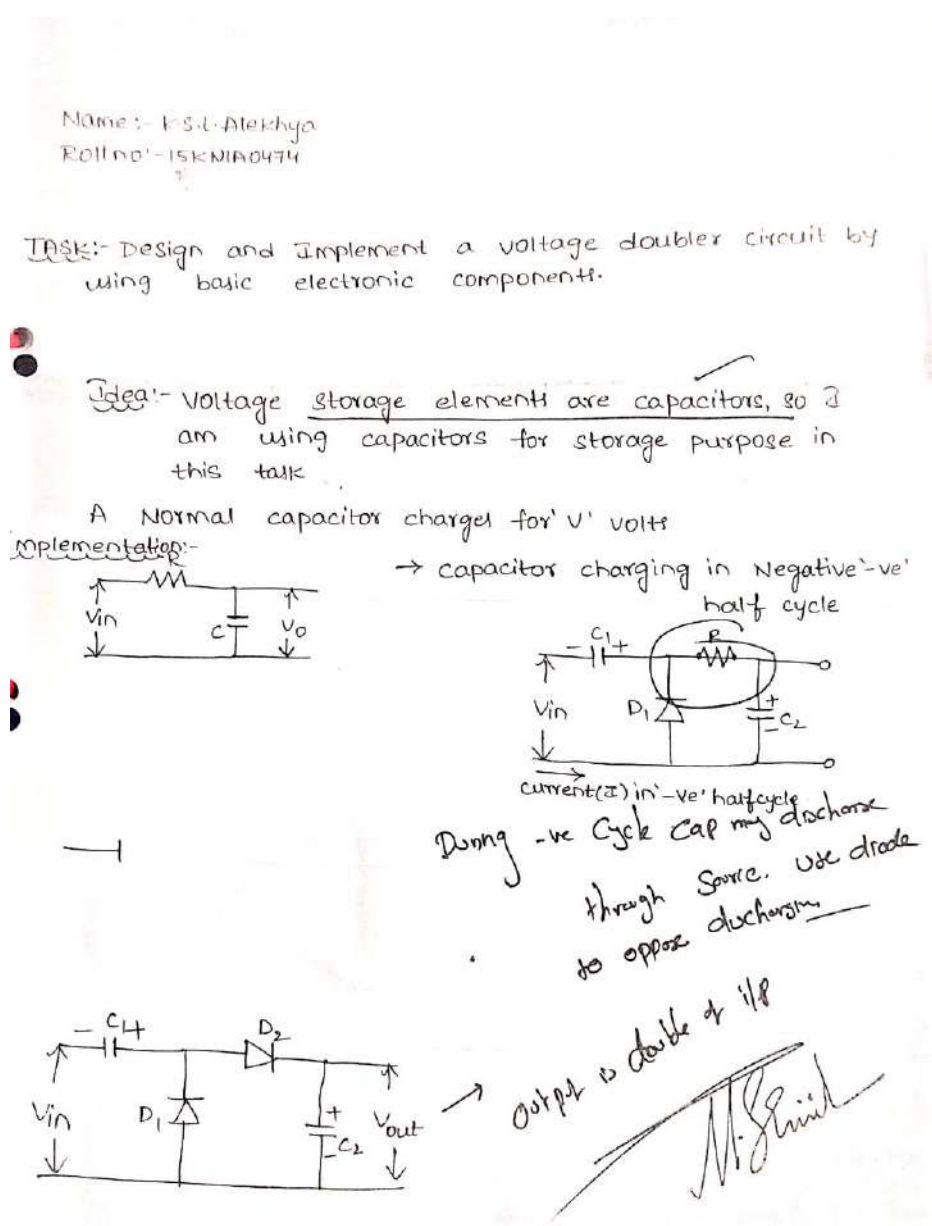 Name:- K.S.L.Alekhya
Roll no:-15KN1A0474
TASK:- Design and Implement a voltage doubler circuit by
using basic electronic components.
Idea:- Voltage storage elements are capacitors, so I
am using capacitors for storage purpose in
this task.
A Normal capacitor charges for 'V' volts
mplementation:-
R
Vin
C
Vo
→ capacitor charging in Negative '-ve'
half cycle
- C1 +
R
Vin
D1
+
- C2
current(I) in '-ve' half cycle
During -ve Cycle Cap may discharge
through Source. Use diode
to oppose discharging
- C1 +
D2
Vin
D1
+
- C2
Vout
→ output is double of i/p